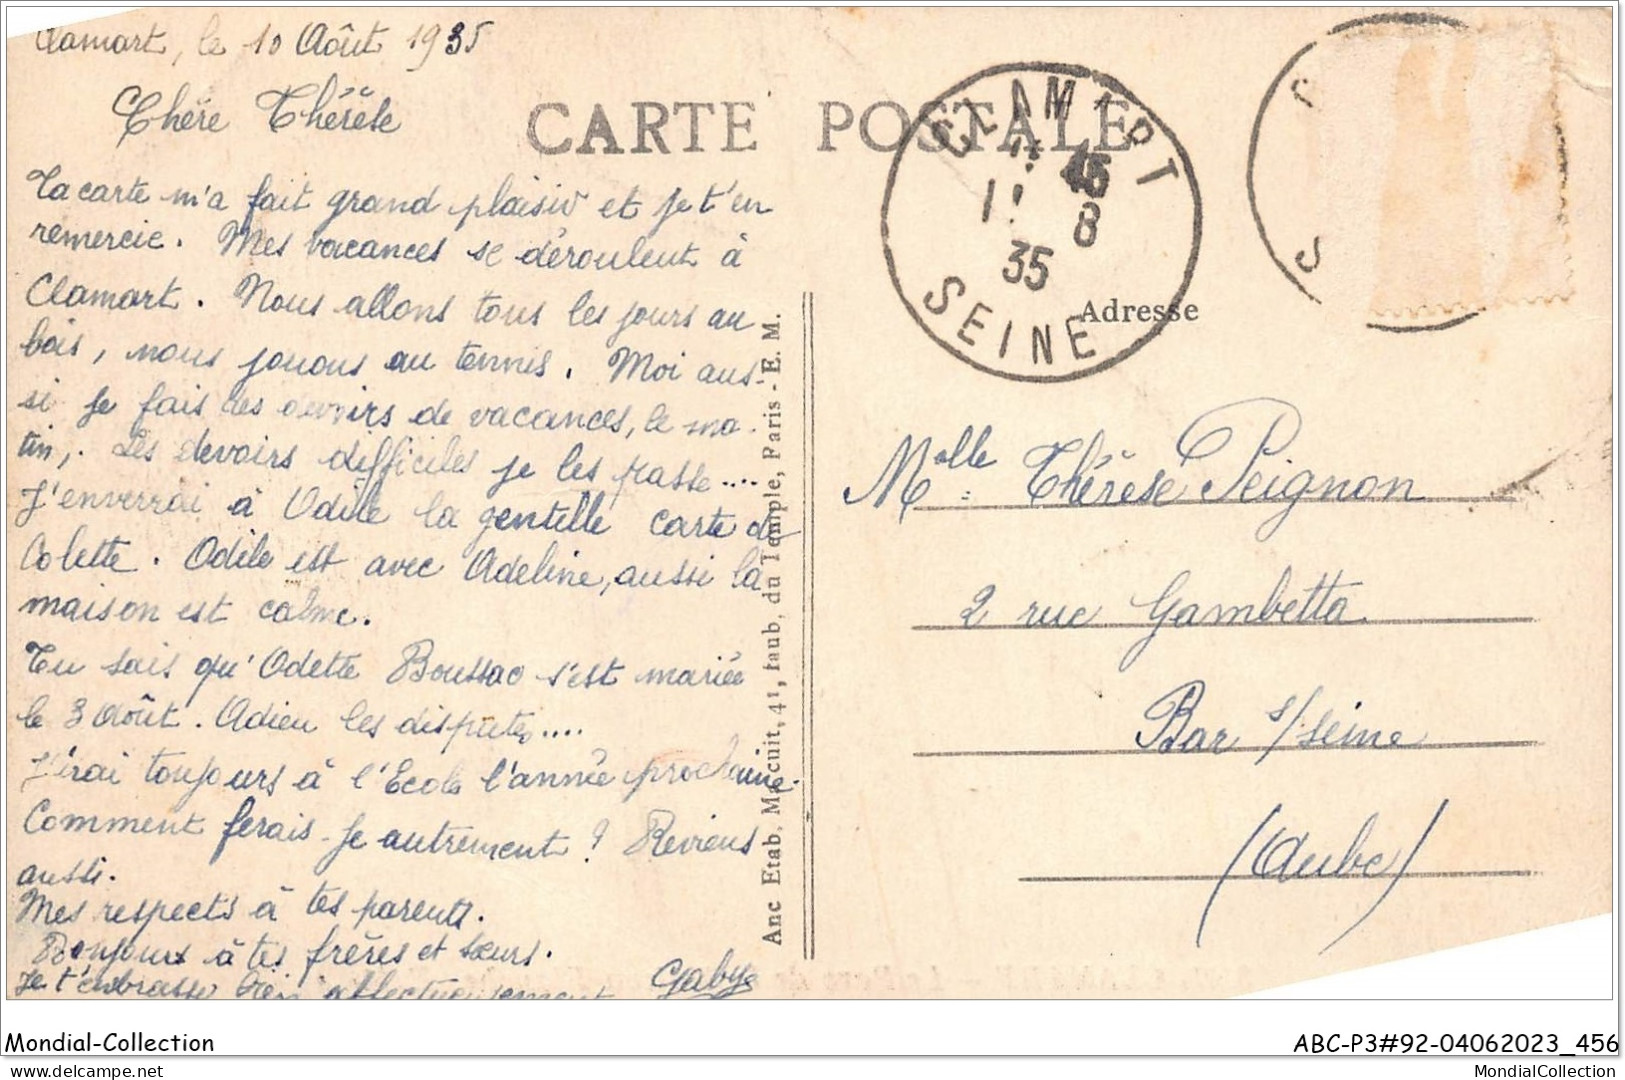 Clamart, le 10 Août 1935
Chère Thérèse
CARTE POSTALE
Ta carte m'a fait grand plaisir et je t'en
remercie. Mes vacances se déroulent à
Clamart. Nous allons tous les jours au
bois, nous jouons au tennis. Moi aus-
si je fais des devoirs de vacances, le ma-
tin,. Les devoirs difficiles je les passe....
J'enverrai à Odile la gentille carte de
Colette. Odile est avec Adeline, aussi la
maison est calme.
Tu sais qu'Odette Boussac s'est mariée
le 3 Août. Adieu les disputes....
J'irai toujours à l'Ecole l'année prochaine.
Comment ferais-je autrement ? Reviens
aussi.
Mes respects à tes parents.
Bonjour à tes frères et sœurs.
Je t'embrasse bien affectueusement
Gabye
Anc Etab. Malcuit, 41, faub. du Temple, Paris - E. M.
CLAMART
8
35
SEINE
Adresse
Melle Thérèse Peignon
2 rue Gambetta
Bar s/seine
(Aube)
Mondial-Collection
ABC-P3#92-04062023_456
delcampe.net
MondialCollection